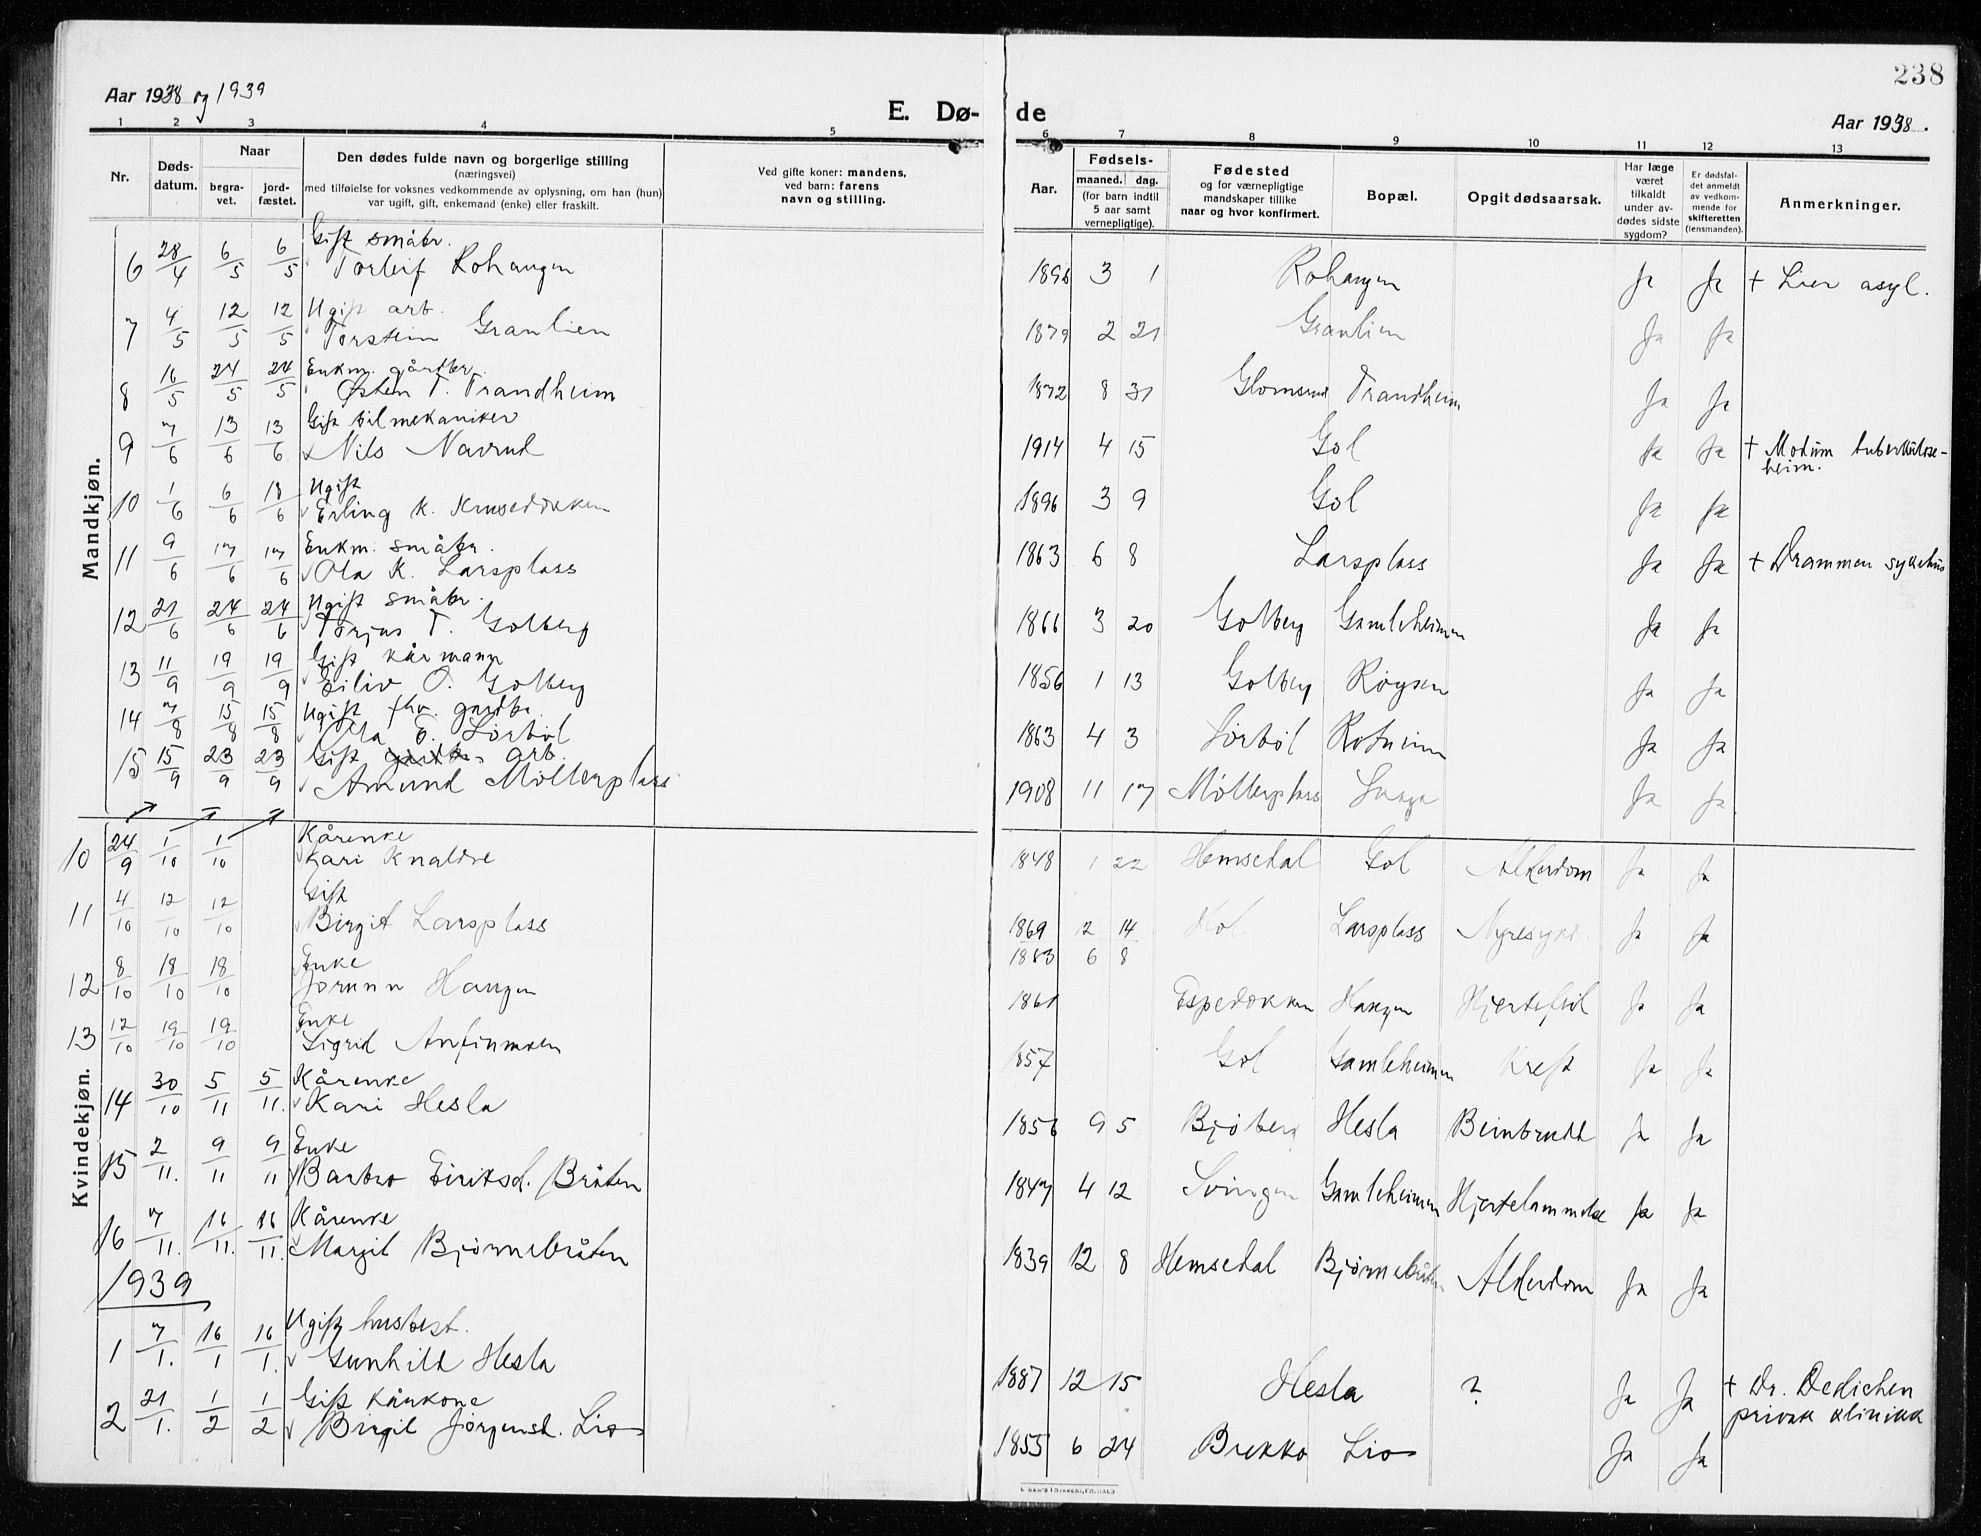 238
Aar 1938 og 1939
E. Dø-
de
Aar 1938.
1 2 3 4 5 6 7 8 9 10 11 12 13
Nr.
Døds-
datum.
Naar
begra-
vet.
jord-
fæstet.
Den dødes fulde navn og borgerlige stilling
(næringsvei)
med tilføielse for voksnes vedkommende av oplysning, om han (hun)
var ugift, gift, enkemand (enke) eller fraskilt.
Ved gifte koner: mandens,
ved barn: farens
navn og stilling.
Aar.
Fødsels-
maaned. dag.
(for barn indtil
5 aar samt
vernepligtige).
Fødested
og for værnepligtige
mandskaper tillike
naar og hvor konfirmert.
Bopæl.
Opgit dødsaarsak.
Har læge
været
tilkaldt
under av-
dødes sidste
sygdom?
Er dødsfal-
det anmeldt
av vedkom-
mende for
skifteretten
(lensmanden).
Anmerkninger.
Mandkjøn.
Gift småbr.
6 28/4 6/5 6/5 Torleif Rohaugen 1896 3 1 Rohaugen Ja Ja + Lier asyl.
Ugift arb.
7 4/5 12/5 12/5 Torstein Granlien 1879 2 21 Granlien Ja Ja
Enkm. gårdbr.
8 16/5 24/5 24/5 Østen T. Trandheim 1872 8 31 Glomsrud Trandheim Ja Ja
Gift bilmekaniker
9 7/6 13/6 13/6 Nils Navrud 1914 4 15 Gol Ja Ja + Modum tuberkulose-
heim.
Ugift
10 1/6 6/6 18/6 Erling K. Krusedokken 1896 3 9 Gol Ja Ja
Enkm. småbr.
11 9/6 17/6 17/6 Ola K. Larsplass 1863 6 8 Larsplass Ja Ja + Drammen sykehus
Ugift småbr.
12 21/6 24/6 24/6 Torjus T. Golberg 1866 3 20 Golberg Gamleheimen Ja Ja
Gift kårmann
13 11/9 19/9 19/9 Eiliv O. Golberg 1856 1 13 Golberg Røysen Ja Ja
Ugift fhv. gardbr.
14 7/8 15/8 15/8 Ola E. Sørbøl 1863 4 3 Sørbøl Rotneim Ja Ja
Gift gardbr. arb.
15 15/9 23/9 23/9 Amund Møllerplass 1908 11 17 Møllerplass Ja Ja
Kvindekjøn.
Kårenke
10 24/9 1/10 1/10 Kari Knaldre 1848 1 22 Hemsedal Gol Alderdom Ja Ja
Gift
11 4/10 12/10 12/10 Birgit Larsplass 1869 2 14 Hol Larsplass Nyresyke Ja Ja
1863 6 8
Enke
12 8/10 18/10 18/10 Jorunn Haugen 1861 Espedokken Haugen Hjertefeil Ja Ja
Enke
13 12/10 19/10 19/10 Sigrid Anfinmoen 1857 Gol Gamleheimen Kreft Ja Ja
Kårenke
14 30/10 5/11 5/11. Kari Hesla 1856 9 5 Bjøberg Hesla Beinbrudd Ja Ja
Enke
15 2/11. 9/11 9/11 Barbro Eiriksd. Bråten 1847 4 12 Svingen Gamleheimen Hjertelammelse Ja Ja
Kårenke
16 7/11. 16/11. 16/11. Margit Bjørnebråten 1839 12 8 Hemsedal Bjørnebråten Alderdom Ja Ja
1939
Ugift husbest.
1 7/1. 16/1 16/1. Gunhild Hesla 1887 12 15 Hesla ? Ja Ja + Dr. Dedichen
privat klinikk
Gift kårkone
2 21/1. 1/2 1/2 Birgit Jørgensd. Lio 1855 6 24 Brekko Lio Ja Ja